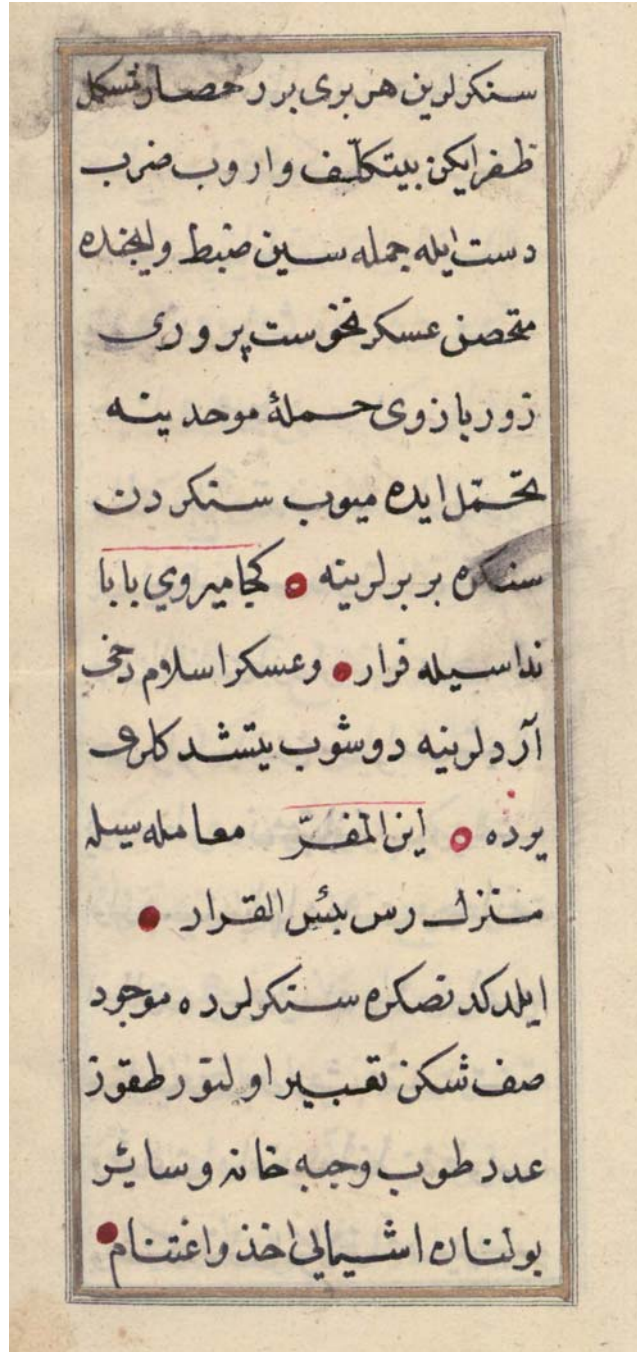 سنكرلرين هر برى برر حصار مشكل
ظفر ايكن بيتكلّف واروب ضرب
دست ايله جمله سين ضبط وايچنده
متحصن عسكر نخوست پرورى
زور بازوى حملۀ موحدينه
تحمّل ايده ميوب سنكردن
سنكره بربرلرينه ه كجا ميروي بابا
نداسيله فرار ه وعسكر اسلام دخى
آردلرينه دوشوب يتشدكلرى
يرده ه اين المفرّ معامله سيله
منزل رس بئس القرار ه
ايلدكدنصكره سنكرلرده موجود
صف شكن تعبير اولنور طقوز
عدد طوب وجبه خانه وسائر
بولنان اشيالى اخذ واغتنام ه